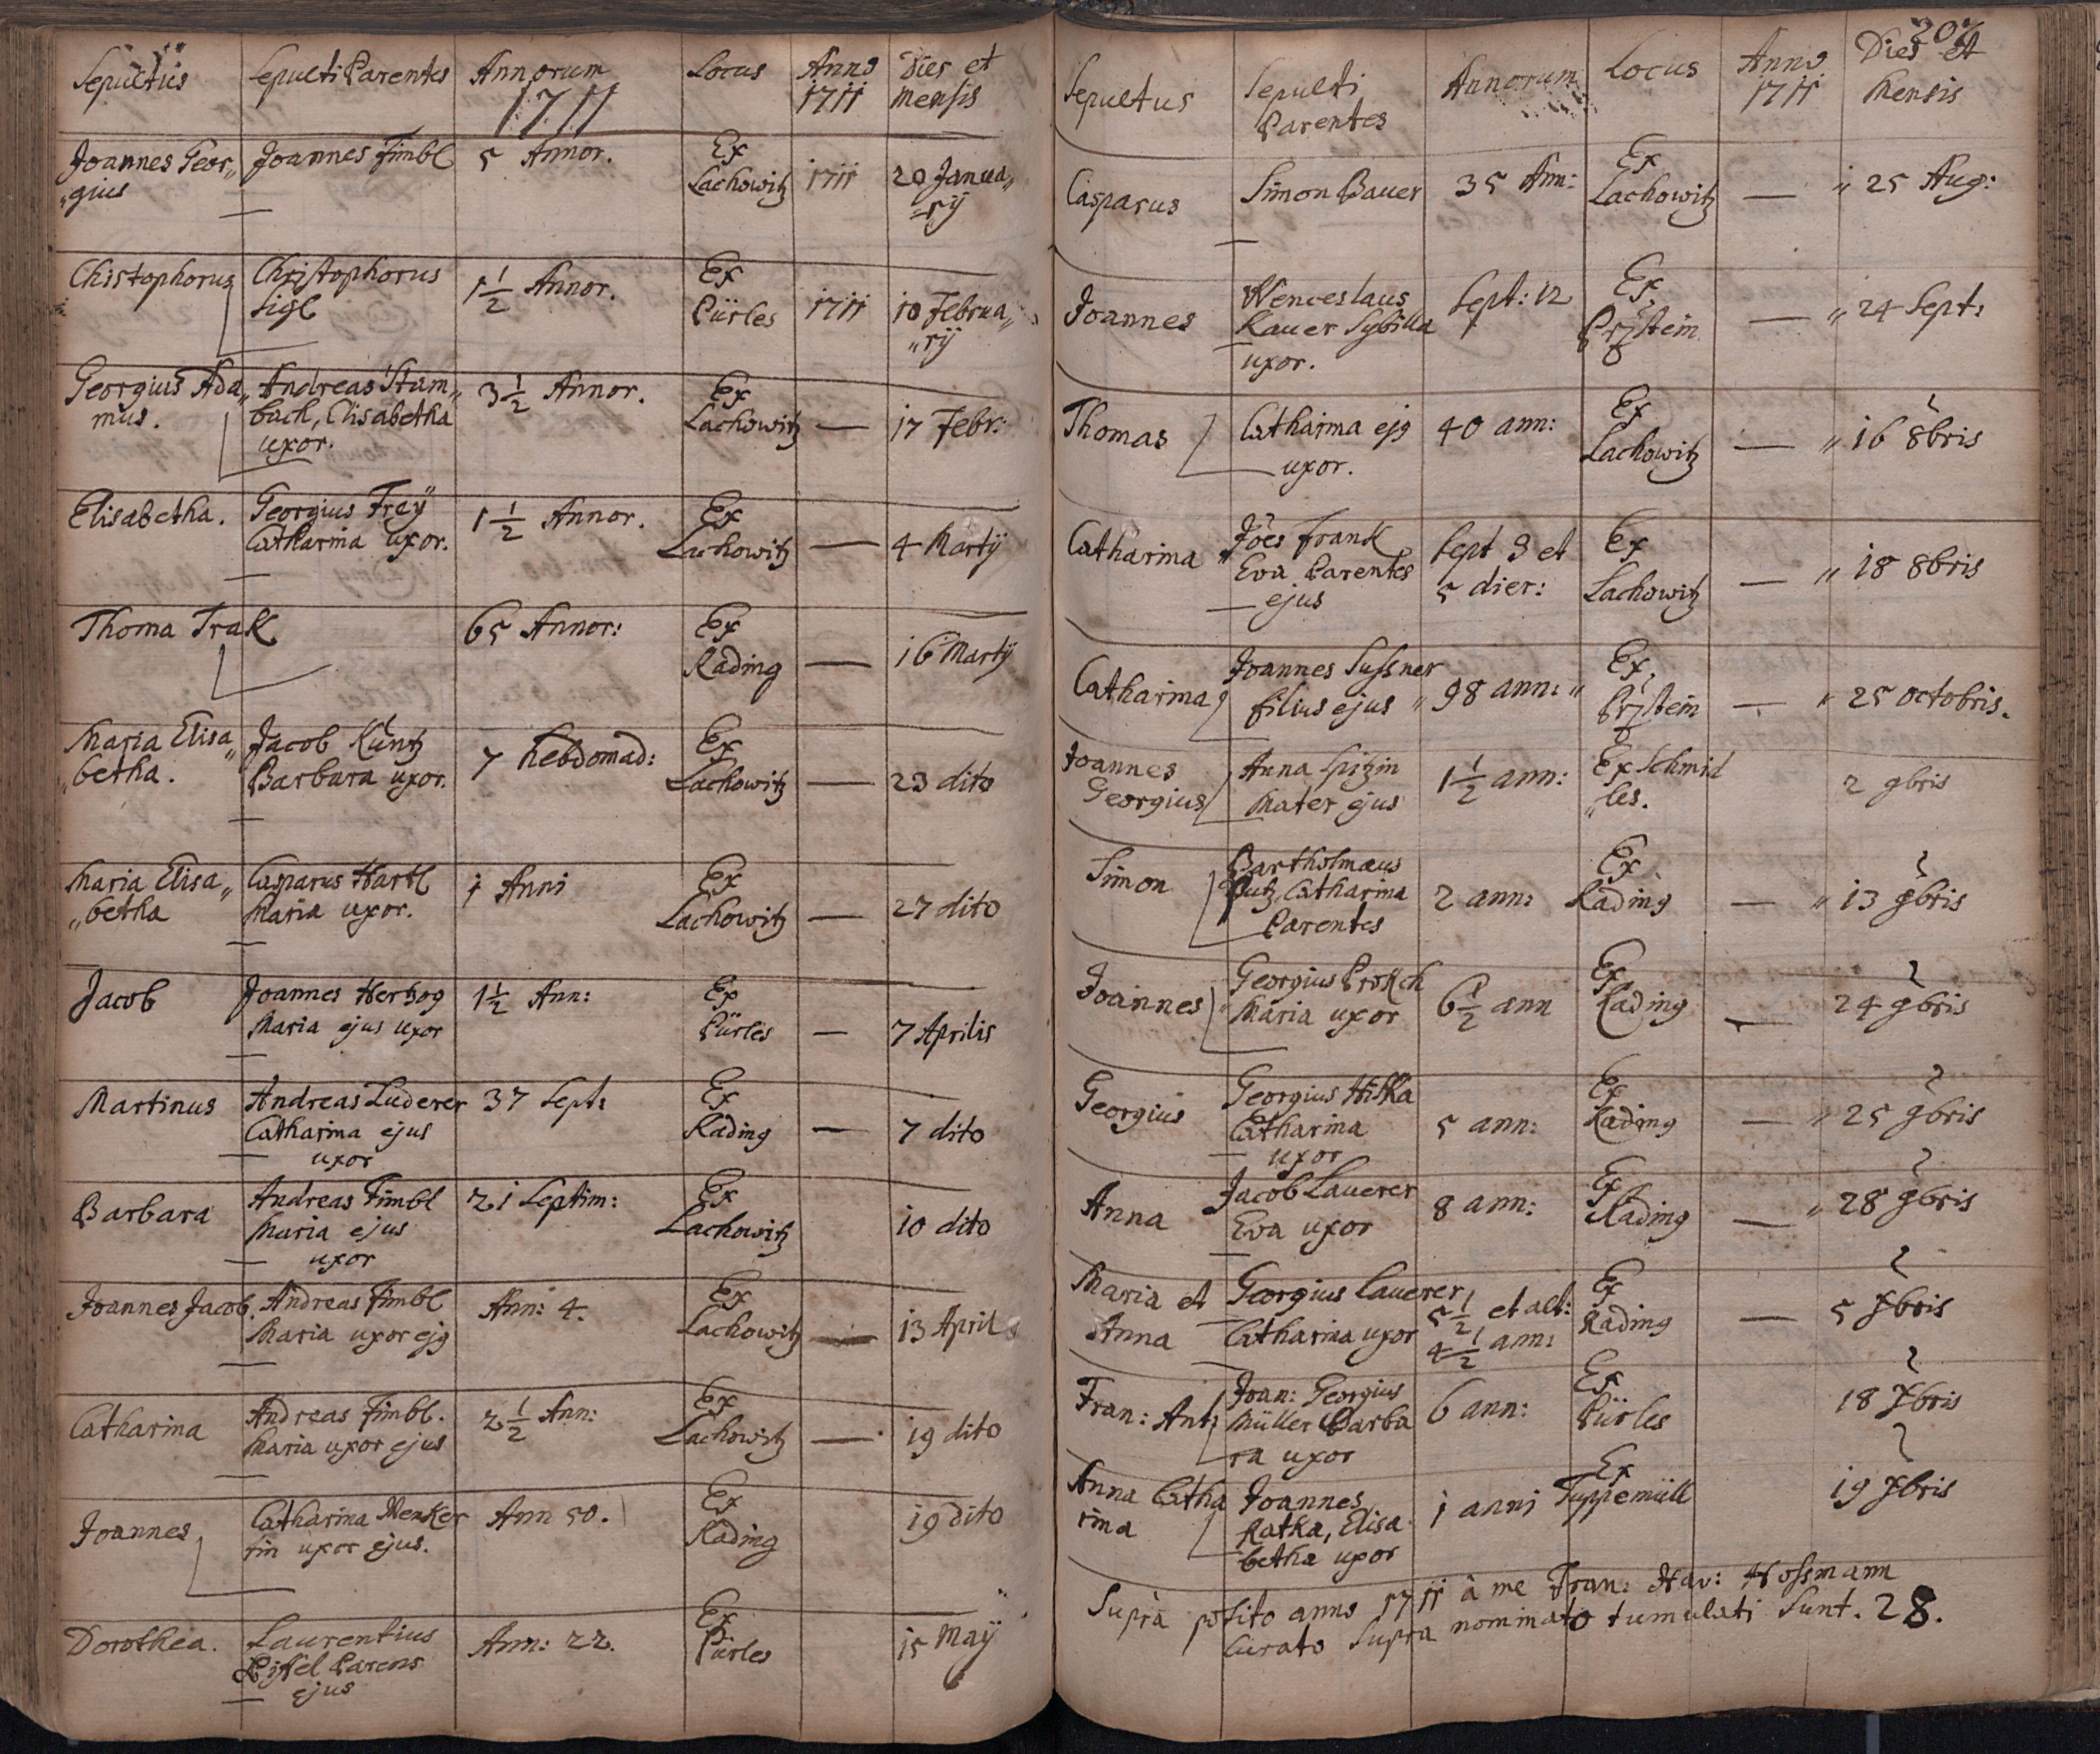 Sepultus Sepulti Parentes Annorum Locus Anno Dies et
1711 1711 Mensis
Joannes Geor„ Joannes Fimbl 5 Annor. Ex
„gius Lachowitz 1711 20 Janua„
„rÿ
Chistophorus Christophorus 1 1/2 Annor. Ex
Sigl Pürles 1711 10 Februa„
„rÿ
Georgius Ada„ Andreas Stam„ 3 1/2 Annor. Ex
mus. bach, Elisabetha Lachowitz — 17 Febr:
uxor.
Elisabetha. Georgius Freÿ 1 1/2 Annor. Ex
Catharina uxor. Lachowitz — 4 Martÿ
Thoma Trak 65 Annor: Ex
Kading — 16 Martÿ
Maria Elisa„ Jacob Küntz 7 hebdomad: Ex
„betha. Barbara uxor. Lachowitz — 23 dito
Maria Elisa„ Casparus Hartl 1 Anni Ex
„betha Maria uxor. Lachowitz — 27 dito
Jacob Joannes Hertzog 1 1/2 Ann: Ex
Maria ejus uxor Pürles — 7 Aprilis
Martinus Andreas Luderer 37 Sept: Ex
Catharina ejus Kading — 7 dito
uxor
Barbara Andreas Fimbl 21 Septim: Ex
Maria ejus Lachowitz 10 dito
uxor
Joannes Jacob. Andreas Fimbl Ann: 4. Ex
Maria uxor ejg Lachowitz — 13 April
Catharina Andreas Fimbl. 2 1/2 Ann: Ex
Maria uxor ejus Lachowitz — 19 dito
Joannes Catharina Menker Ann 50. Ex
tin uxor ejus. Kading 19 dito
Dorothea. Laurentius Ann: 22. Ex
Parens Pürles 15 Maÿ
ejus
207
Sepultus Sepulti Annorum Locus Anno Dies et
Parentes 1711 Mensis
Casparus Simon Bauer 35 Ann: Ex
Lachowitz — „ 25 Aug:
Joannes Wenceslaus Sept: 12 Ex
Kauer Sybilla — „ 24 Sept:
uxor.
Thomas Catharina ejg 40 ann: Ex
uxor. Lachowitz — „ 16 8bris
Catharina Jões Frank Sept 3 et Ex
Eva Parentes 5 dier: Lachowitz — „ 18 8bris
ejus
Catharina Joannes Sussner 98 ann: „ Ex
filius ejus — „ 25 octobris.
Joannes Anna Spitzin 1 1/2 ann: Ex Schmid
Georgius Mater ejus les. 2 9bris
Simon Bartholmæus 2 ann: Ex
Putz, Catharina Kading — „ 13 9bris
Parentes
Joannes Georgius Prokch 6 1/2 ann Ex
Maria uxor Kading — 24 9bris
Georgius Georgius Hiska 5 ann: Ex
Catharina Kading — „ 25 9bris
uxor
Anna Jacob Lauerer 8 ann: Ex
Eva uxor Kading — „ 28 9bris
Maria et Georgius Lauerer 5 1/2 et alt: Ex
Anna Catharina uxor 4 1/2 ann: Kading — 5 Xbris
Fran: Ant: Joan: Georgius 6 ann: Ex
Müller Barba Pürles 18 Xbris
ra uxor
Anna Catha Joannes 1 anni Ex
rina Katka, Elisa Tuppemüll 19 Xbris
betha uxor
Suprà posito anno 1711 à me Fran: Xav: Hossmann
Curato Supra nominato tumulati Sunt. 28.